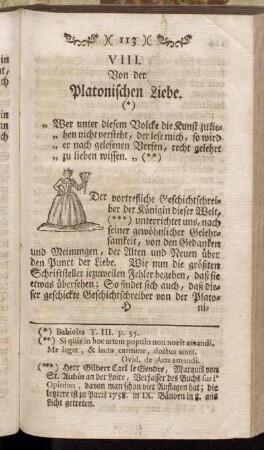 113
VIII.
Von der
Platonischen Liebe.
(*)
„ Wer unter diesem Volcke die Kunst zu lie=
„ hen nicht versteht, der lese mich, so wird
„ er nach gelesenen Versen, recht gelehrt
„ zu lieben wissen. „ (**)
Der vortrefliche Geschichtschrei=
ber der Königin dieser Welt,
(***) unterrichtet uns, nach
seiner gewöhnlicher Gelehr=
samkeit, von den Gedanken
und Meinungen, der Alten und Neuen über
den Punct der Liebe. Wie nun die größten
Schriftsteller iezuweilen Fehler begehen, daß sie
etwas übersehen; So findet sich auch, daß die=
ser geschickte Geschichtschreiber von der Plato=
H ni=
(*) Babioles T. III. p. 35.
(**) Si quis in hoc artem populo non novit amandi,
Me legat, & lecto carmine, doctus amet.
Ovid. de Arte amandi.
(***) Herr Gilbert Carl le Gendre, Marquis von
St. Aubin an der Loire, Verfasser des Buchs sur l'
Opinion, davon man schon vier Auflagen hat; die
letztere ist zu Paris 1758. in IX. Bänden in 8. ans
Licht getreten.